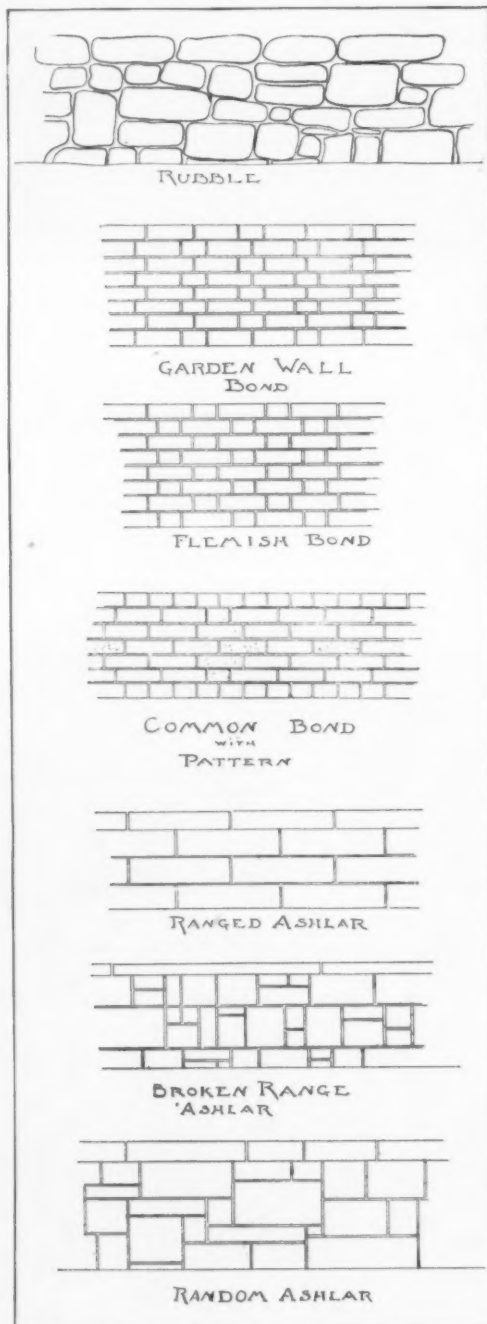 RUBBLE
GARDEN WALL
BOND
FLEMISH BOND
COMMON BOND
WITH
PATTERN
RANGED ASHLAR
BROKEN RANGE
ASHLAR
RANDOM ASHLAR